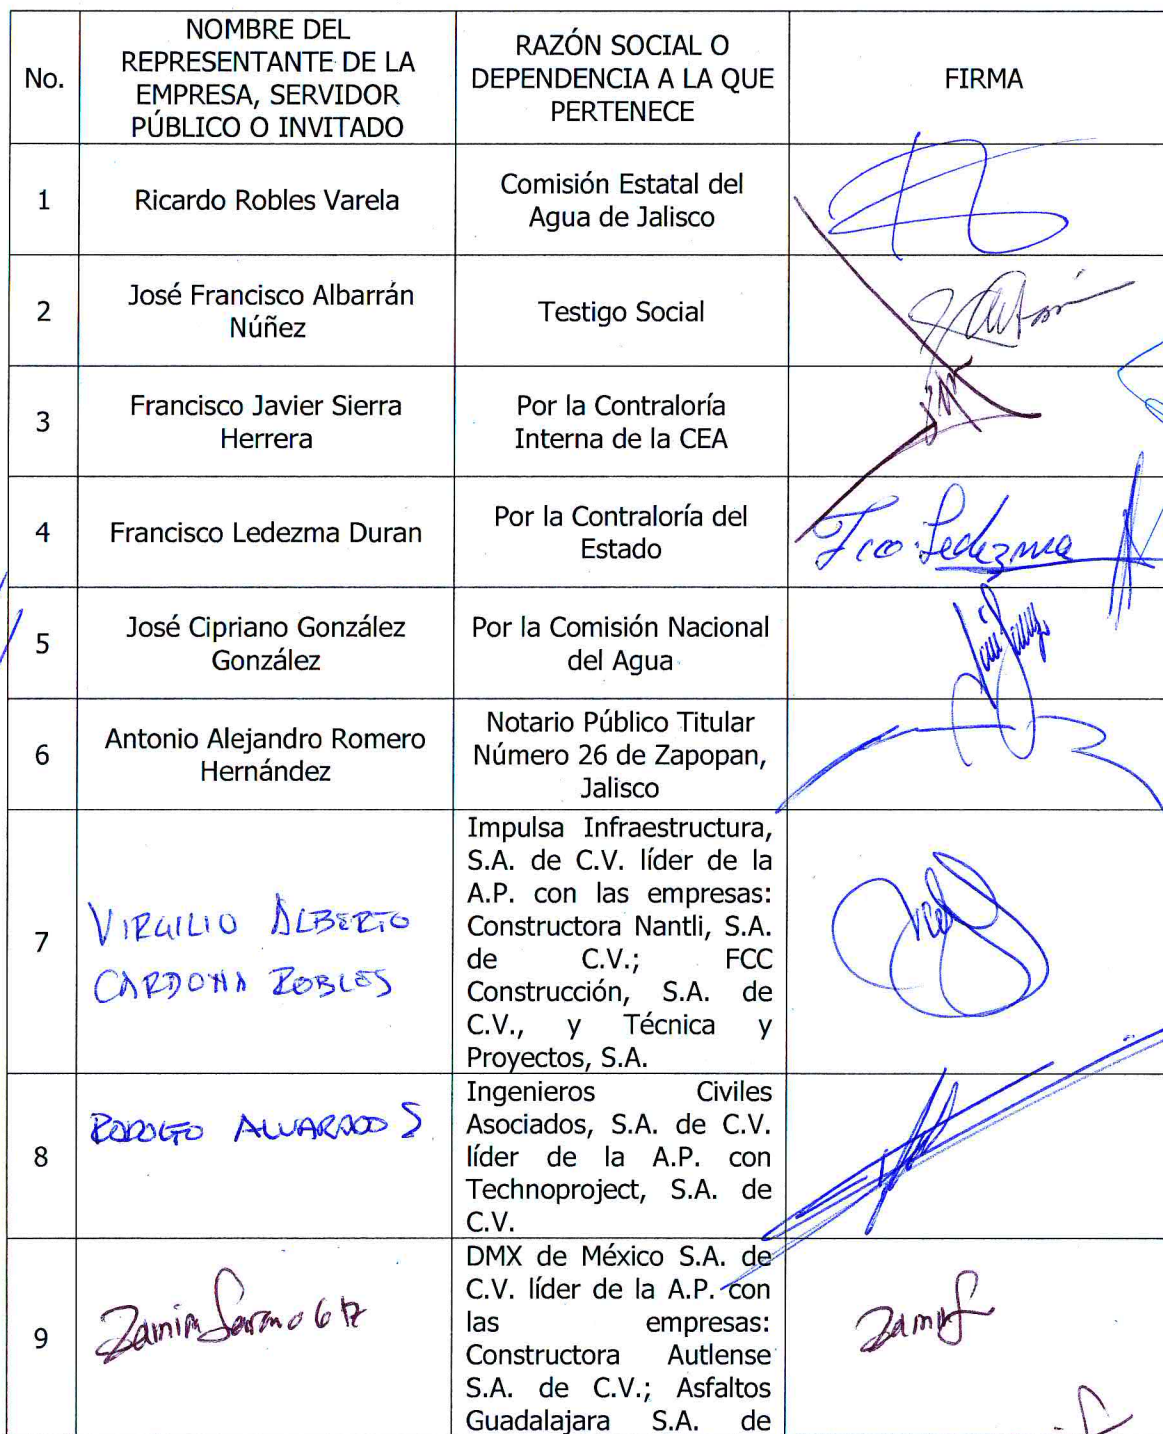 No.
NOMBRE DEL
REPRESENTANTE DE LA
EMPRESA, SERVIDOR
PÚBLICO O INVITADO
RAZÓN SOCIAL O
DEPENDENCIA A LA QUE
PERTENECE
FIRMA
1
Ricardo Robles Varela
Comisión Estatal del
Agua de Jalisco
2
José Francisco Albarrán
Núñez
Testigo Social
3
Francisco Javier Sierra
Herrera
Por la Contraloría
Interna de la CEA
4
Francisco Ledezma Duran
Por la Contraloría del
Estado
Fco. Ledezma
5
José Cipriano González
González
Por la Comisión Nacional
del Agua
6
Antonio Alejandro Romero
Hernández
Notario Público Titular
Número 26 de Zapopan,
Jalisco
7
VIRGILIO ALBERTO
CARDONA ROBLES
Impulsa Infraestructura,
S.A. de C.V. líder de la
A.P. con las empresas:
Constructora Nantli, S.A.
de C.V.; FCC
Construcción, S.A. de
C.V., y Técnica y
Proyectos, S.A.
8
RODOLFO ALVARADO S
Ingenieros Civiles
Asociados, S.A. de C.V.
líder de la A.P. con
Technoproject, S.A. de
C.V.
9
DMX de México S.A. de
C.V. líder de la A.P. con
las empresas:
Constructora Autlense
S.A. de C.V.; Asfaltos
Guadalajara S.A. de